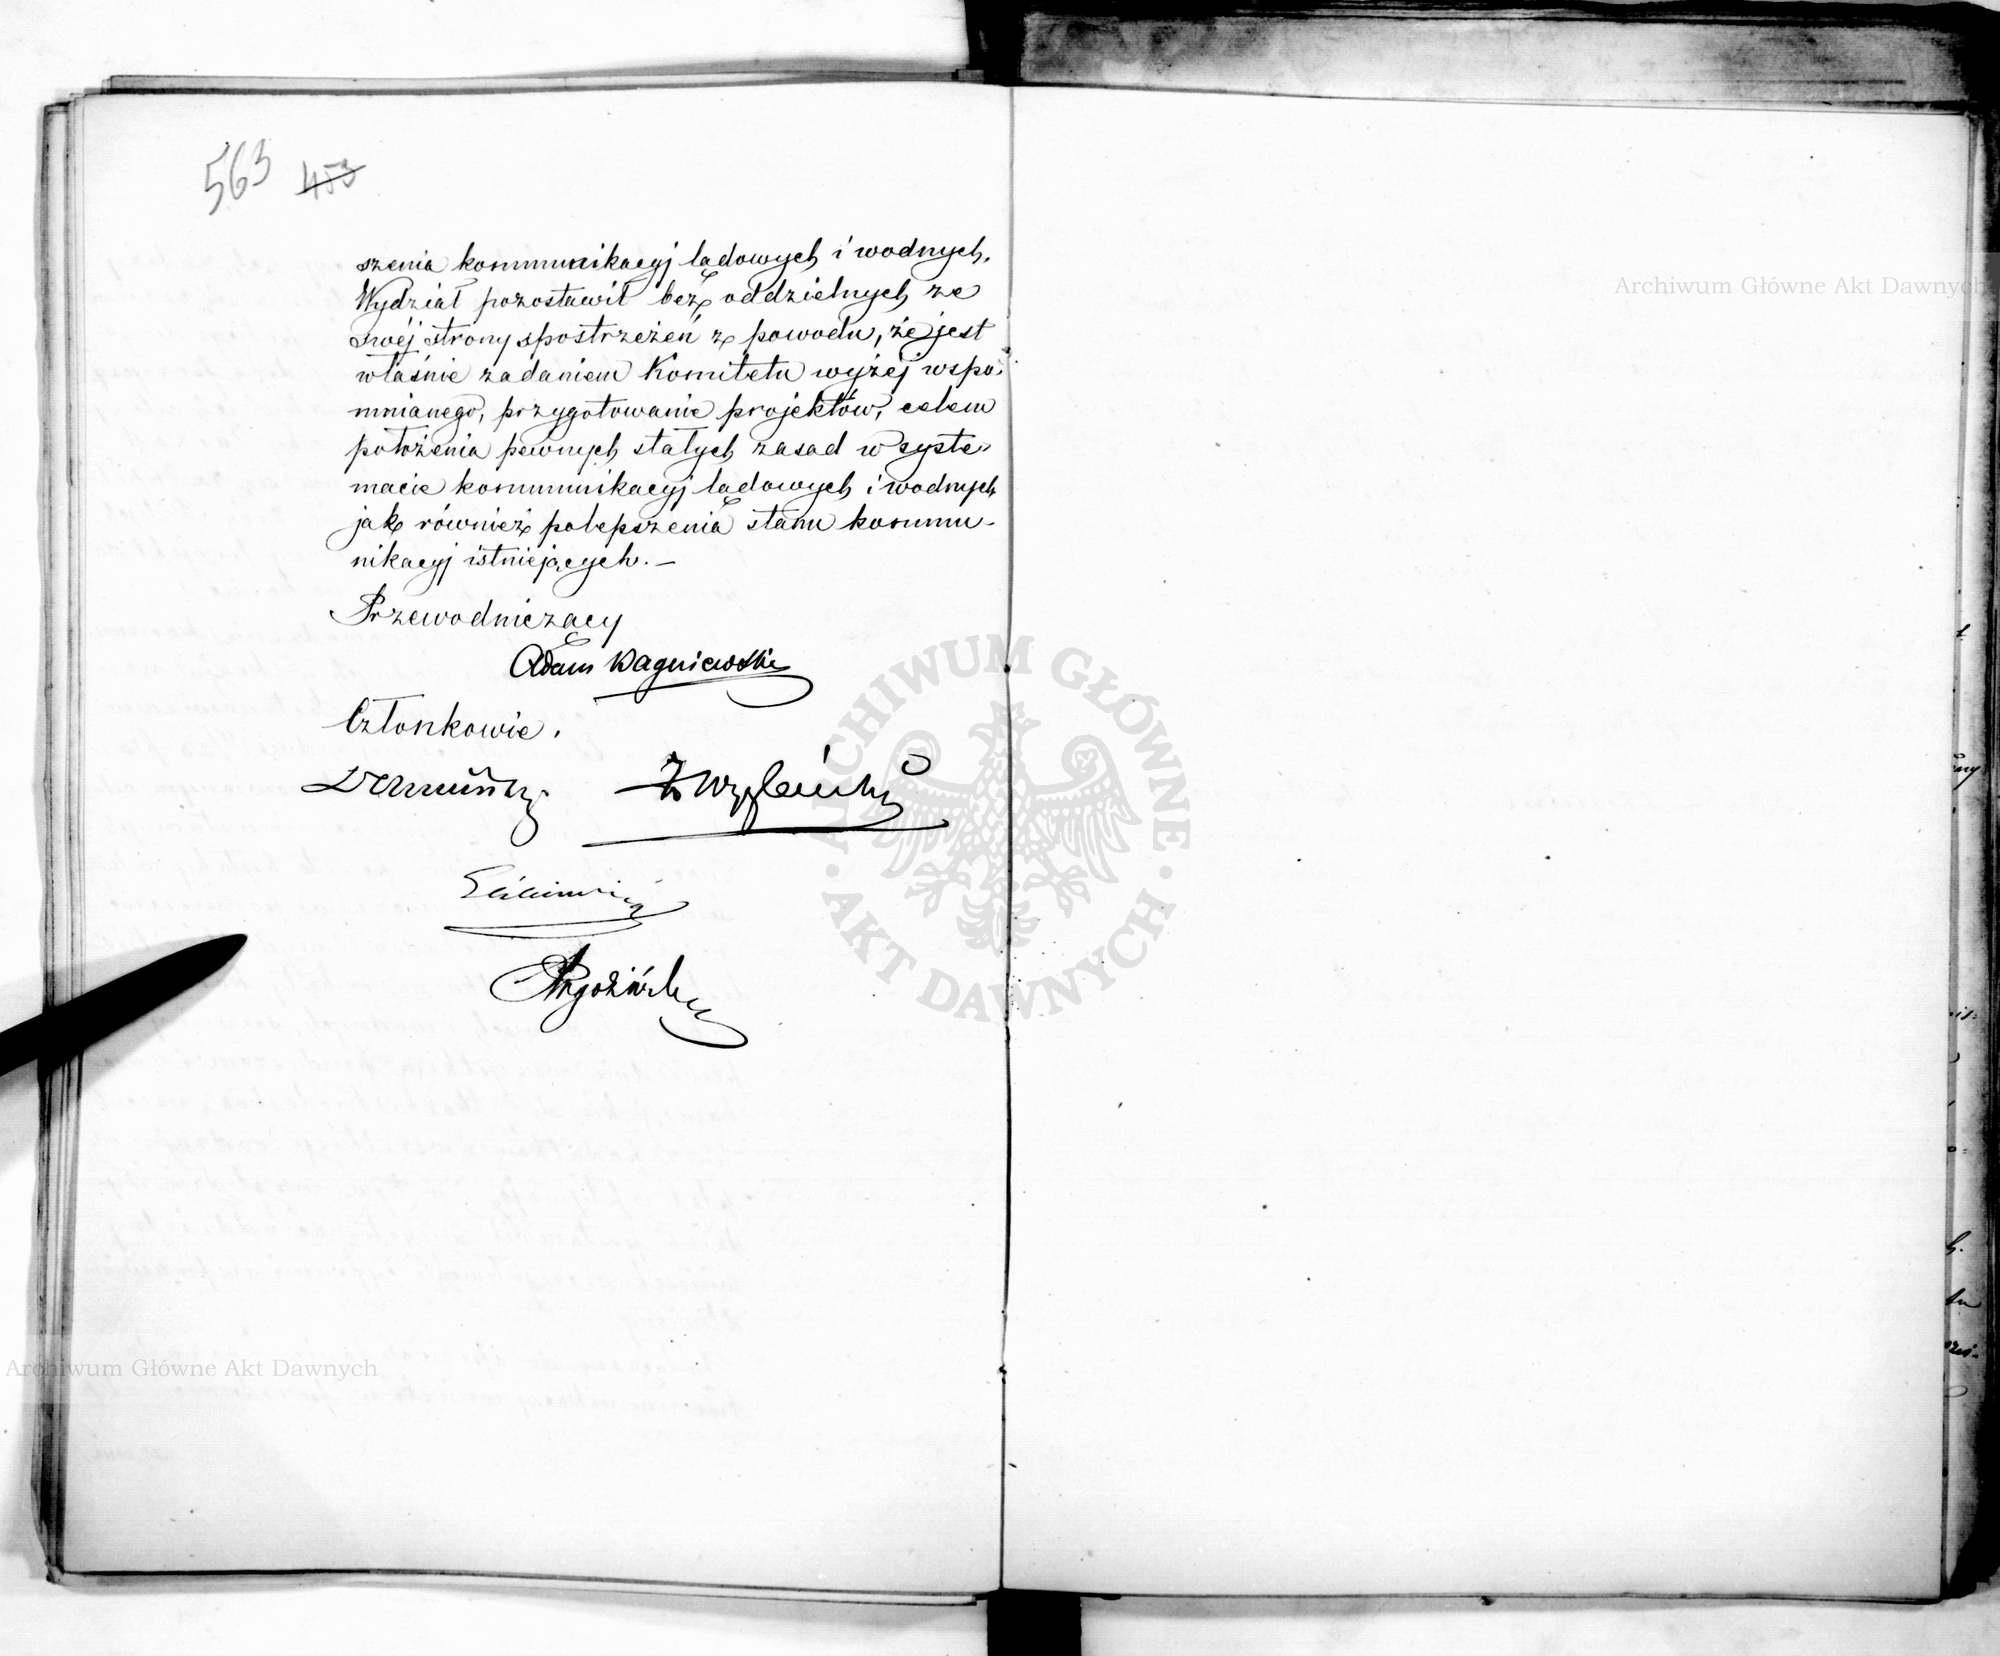 563 453
szenia kommunikacyj lądowych i wodnych.
Wydział pozostawił bez oddzielnych ze
swéj strony spostrzeżeń z powodu, że jest
właśnie zadaniem Komitetu wyżéj wspo-
mnianego, przygotowanie projektów, celem
położenia pewnych stałych zasad w syste-
macie kommunikacyj lądowych i wodnych
jak również polepszenia stanu kommu-
nikacyj istniejących. —
Przewodniczący
Adam Bagniewski
Członkowie.
Archiwum Główne Akt Dawnych
ARCHIWUM GŁÓWNE · AKT DAWNYCH ·
Archiwum Główne Akt Dawnych